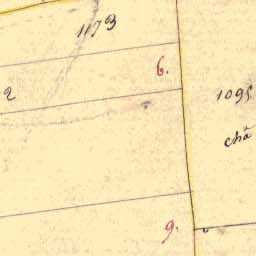 1173
6.
2
1095
châ
9.